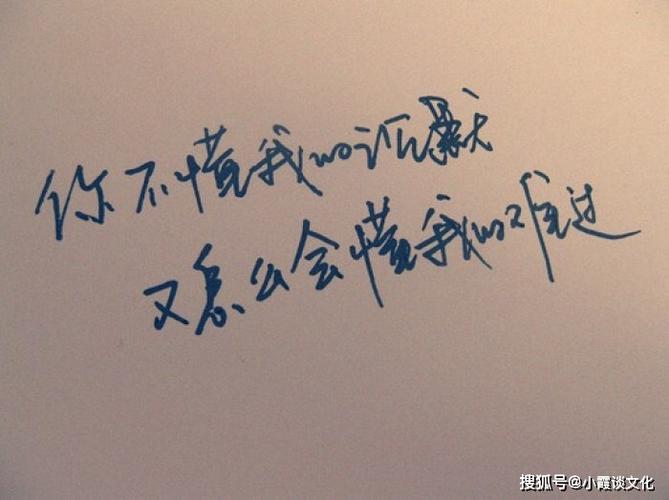 你不懂我的沉默
又怎么会懂我的难过
搜狐号@小霞谈文化